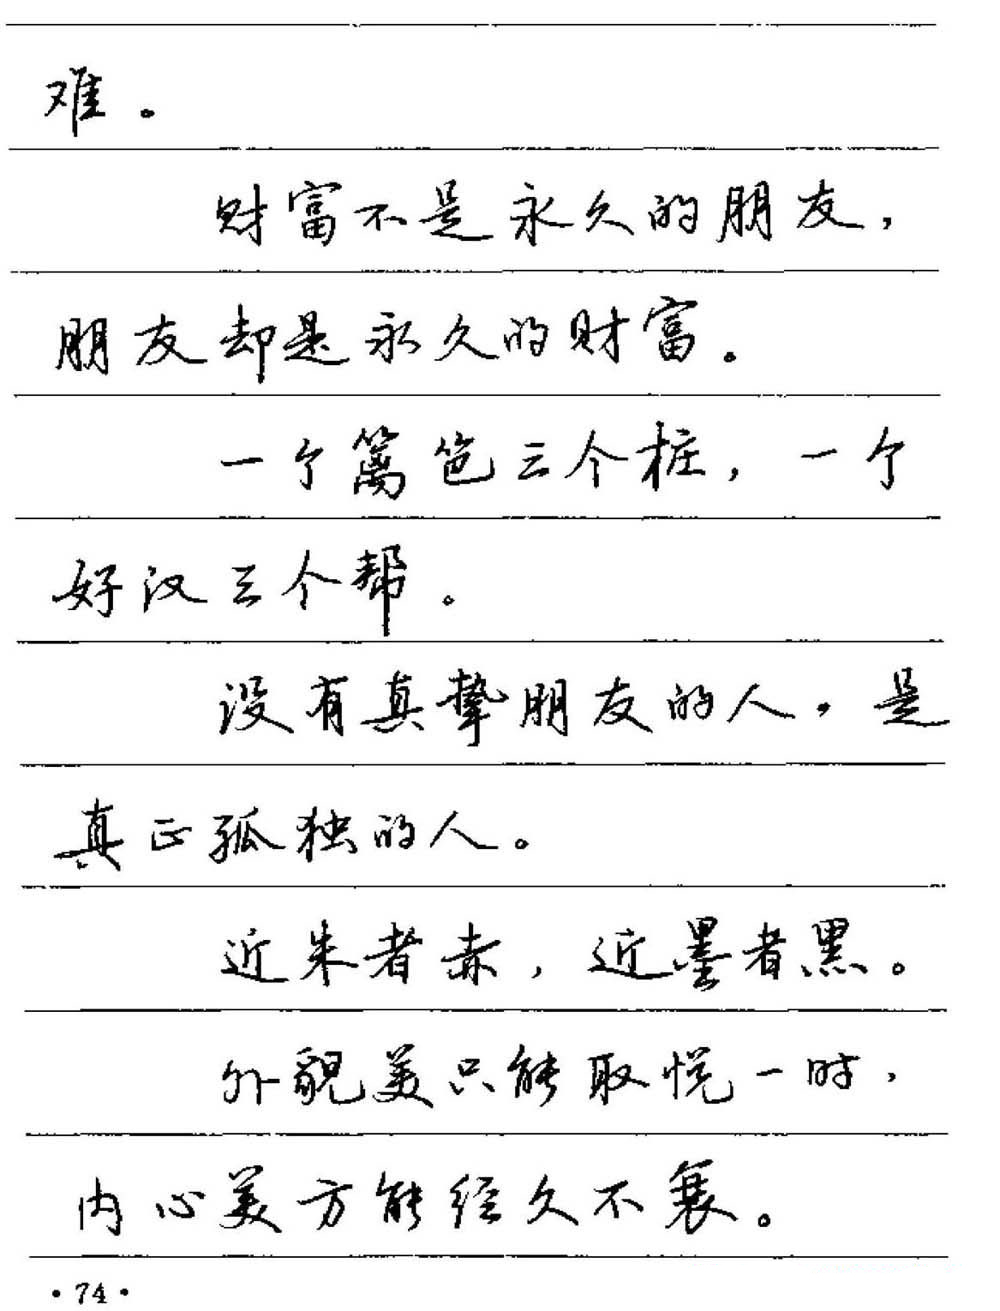 难。
财富不是永久的朋友，
朋友却是永久的财富。
一个篱笆三个桩，一个
好汉三个帮。
没有真挚朋友的人，是
真正孤独的人。
近朱者赤，近墨者黑。
外貌美只能取悦一时，
内心美方能经久不衰。
·74·